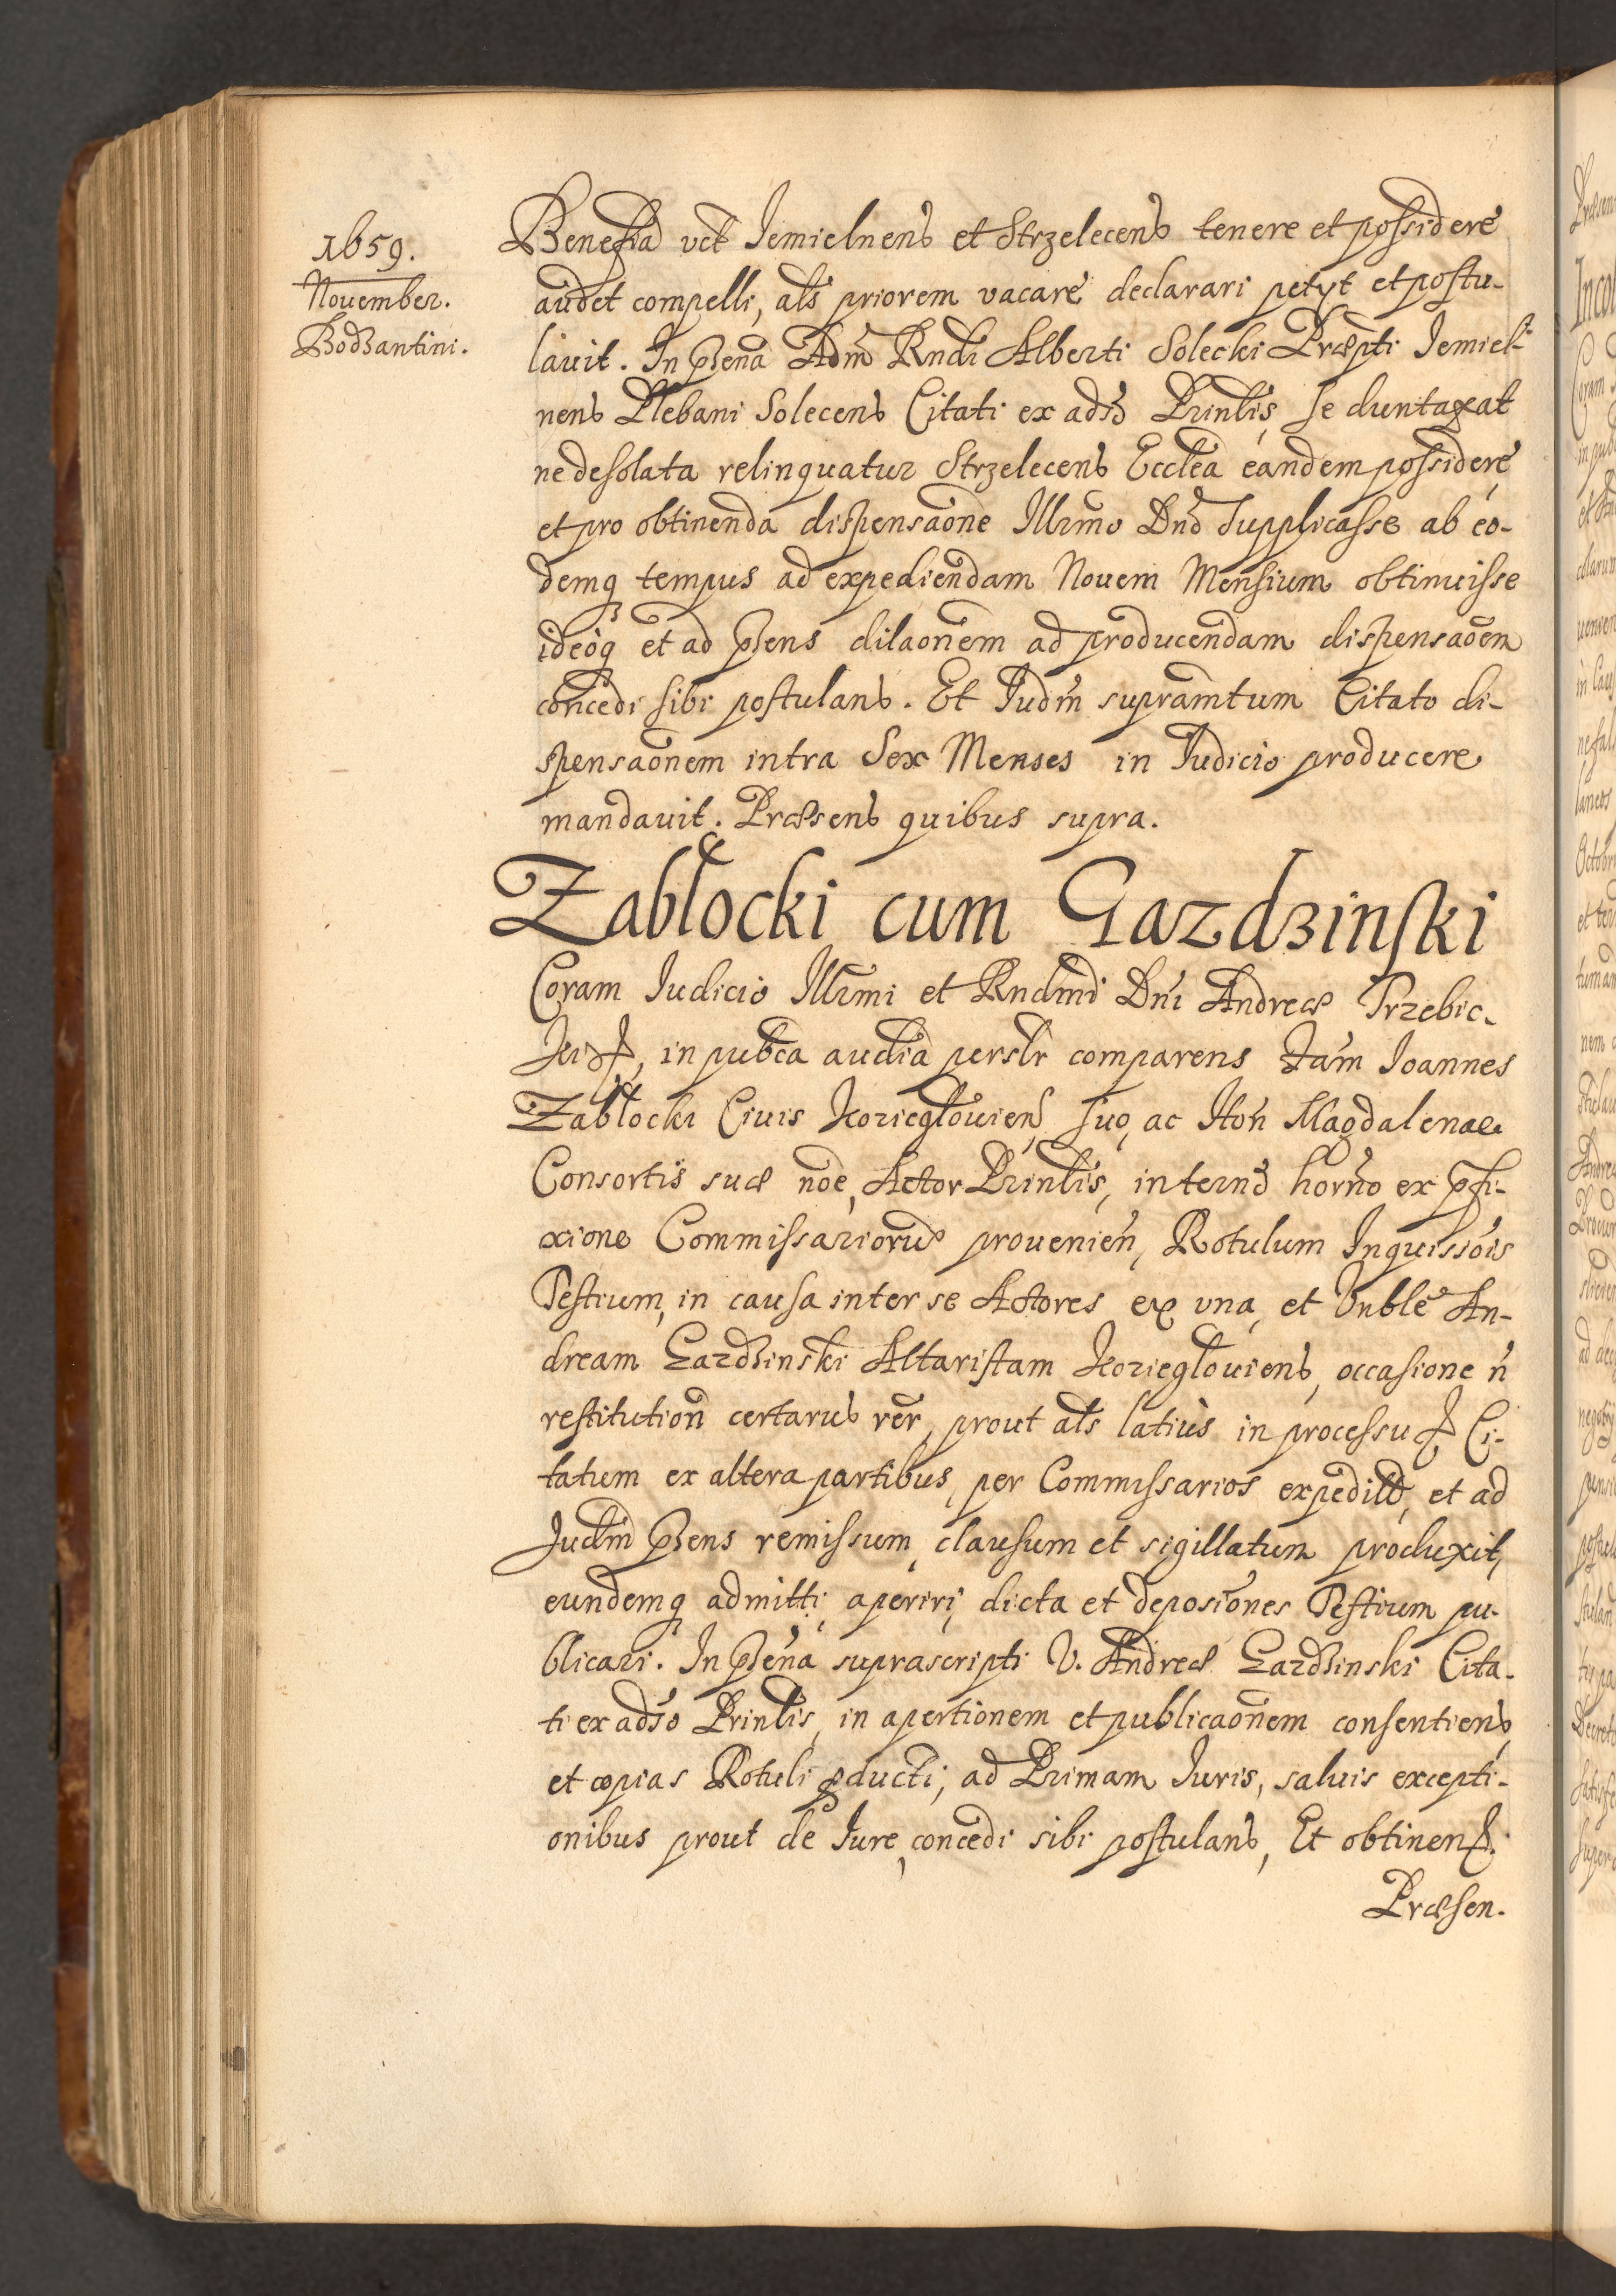 1659.
Nouember.
Bodzantini.
Beneficia vct Iemielnens et Strzelecens tenere et possidere
audet compelli, als priorem vacare declarari petyt et postu-
lauit. In pñena Adm Rndi Alberti Solecki Præpti Iemiel-
nens Plebani Solecens Citati ex adso Prinlis, se duntaxat
ne desolata relinquatur Strzelecens Ecclea eandem possidere,
et pro obtinenda dispensaone Illrmo Dno supplicasse ab eo-
demq tempus ad expediendam Nouem Mensium obtinuisse
ideoq et ad pñens dilaonem ad producendam dispensaoem
concedi sibi postulans. Et Iudm supramtum Citato di-
spensaonem intra Sex Menses in Iudicio producere
mandauit. Præsens quibus supra.
Zabłocki cum Gazdzinski
Coram Iudicio Illrmi et Rndmi Dni Andreæ Trzebic-
ki, in pubca audia perslr comparens Fam Ioannes
Zabłocki Ciuis Kozieglouien, suo, ac Hon Magdalenae
Consortis suæ noe, Actor Prinlis, in termo horno ex præfi-
xione Commissariorum prouenien, Rotulum Inquissois
Testium, in causa inter se Actores ex vna, et Vnble An-
dream Gazdzinski Altaristam Kozieglouiens, occasione n
restitution certarus rer, prout als latius in processu Ci-
tatum ex altera partibus, per Commissarios expeditum, et ad
Iudm pñens remissum, clausum et sigillatum produxit,
eundemq admitti, aperiri, dicta et deposiones Testium pu-
blicari. In pñena suprascripti V. Andreæ Gazdzinski Cita-
ti ex adso Prinlis, in apertionem et publicaonem consentiens,
et copias Rotuli producti, ad Primam Iuris, saluis excepti-
onibus prout de Iure, concedi sibi postulans, Et obtinen.
Præsen.